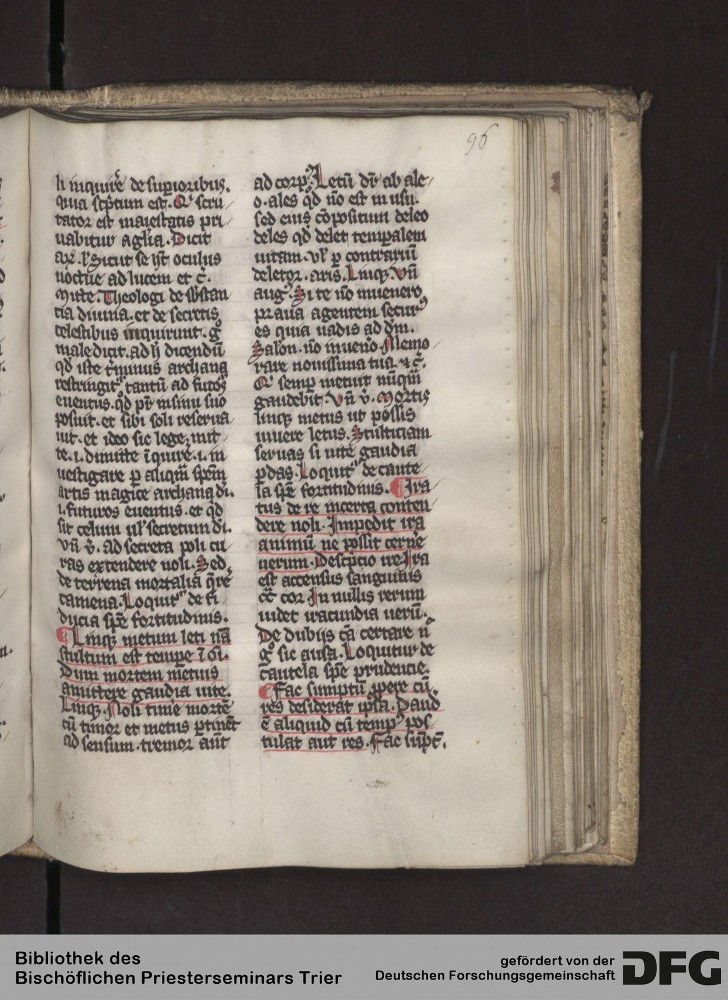 96
li inquire͛ de supioribus.
quia sc͛ptum est. Q' scru
tator est maiestatis pri
uabitur a gl͛ia. Dicit
ar͛. Sicut se h͛t oculus
noctue ad lucem et c͛.
Theologi de sb͛stan
cia diuina. et de secretis
celestibus inquirunt. g°
male dicit. ad h͛ dicendū
qd͛ iste t͛minus archana
restringit͛ tantū ad futos
euentus. qd͛ pr͛ in sinu suo
posuit. et sibi soli reserua
uit. et ideo sic lege. mit
te .i. dimitte īquire .i. in
uestigare p aliquā spēm
artis magice archana di.
.i. futuros euentus. et qd͛
sit celum ul͛ secretum di.
Vn̄ v͛. ad secreta poli cu
ras extendere noli. Sed
de terrena mortalia q͛re
camena. Loquit͛ de fi
ducia spē fortitudinis.
¶ Linq; metum leti nā
stultum est tempe ī oī.
Dum mortem metuis
amittere gaudia uite.
Linq;. Noli time mortē
cū timor et metus ptinēt
ad sensum. tremor aūt
ad corp͛. Letū dr͛ ab ale
o. ales qd͛ nō est in usu.
sed eius cōpositum deleo
deles qd͛ delet temp̄alem
uitam. ul͛ p contrariū
deletor. aris. Linq;. Vn̄
aug͛. Si te nō inuenero
praua agentem secur͛
es quia uadis ad dm̄.
Salon. nō inueno. Memo
rare nouissima tua. & c͛.
Q' semp metuit nūquā
gaudebit. Vn̄ v͛. Mortis
linq; metus ut possis
uiuere letus. Stulticiam
seruas si uite gaudia
pdas. Loquit͛ de caute
la spē fortitudinis. ¶ Ira
tus de re incerta conten
dere noli. Impedit ira
animū ne possit cerne
uerum. Descp͛tio ire Ira
est accensus sanguinis
cc͛ cor In nullis rerum
uidet iracundia uerū.
De dubijs cā certare n̄
g° sic ausa. Loquitur de
cautela spē prudencie.
¶ Fac sumptū ppere cū
res desiderat ipsa. Dand
ē aliquid cū temp͛ pos
tulat aut res. Fac sūpt͛.
Bibliothek des
Bischöflichen Priesterseminars Trier
gefördert von der
Deutschen Forschungsgemeinschaft
DFG